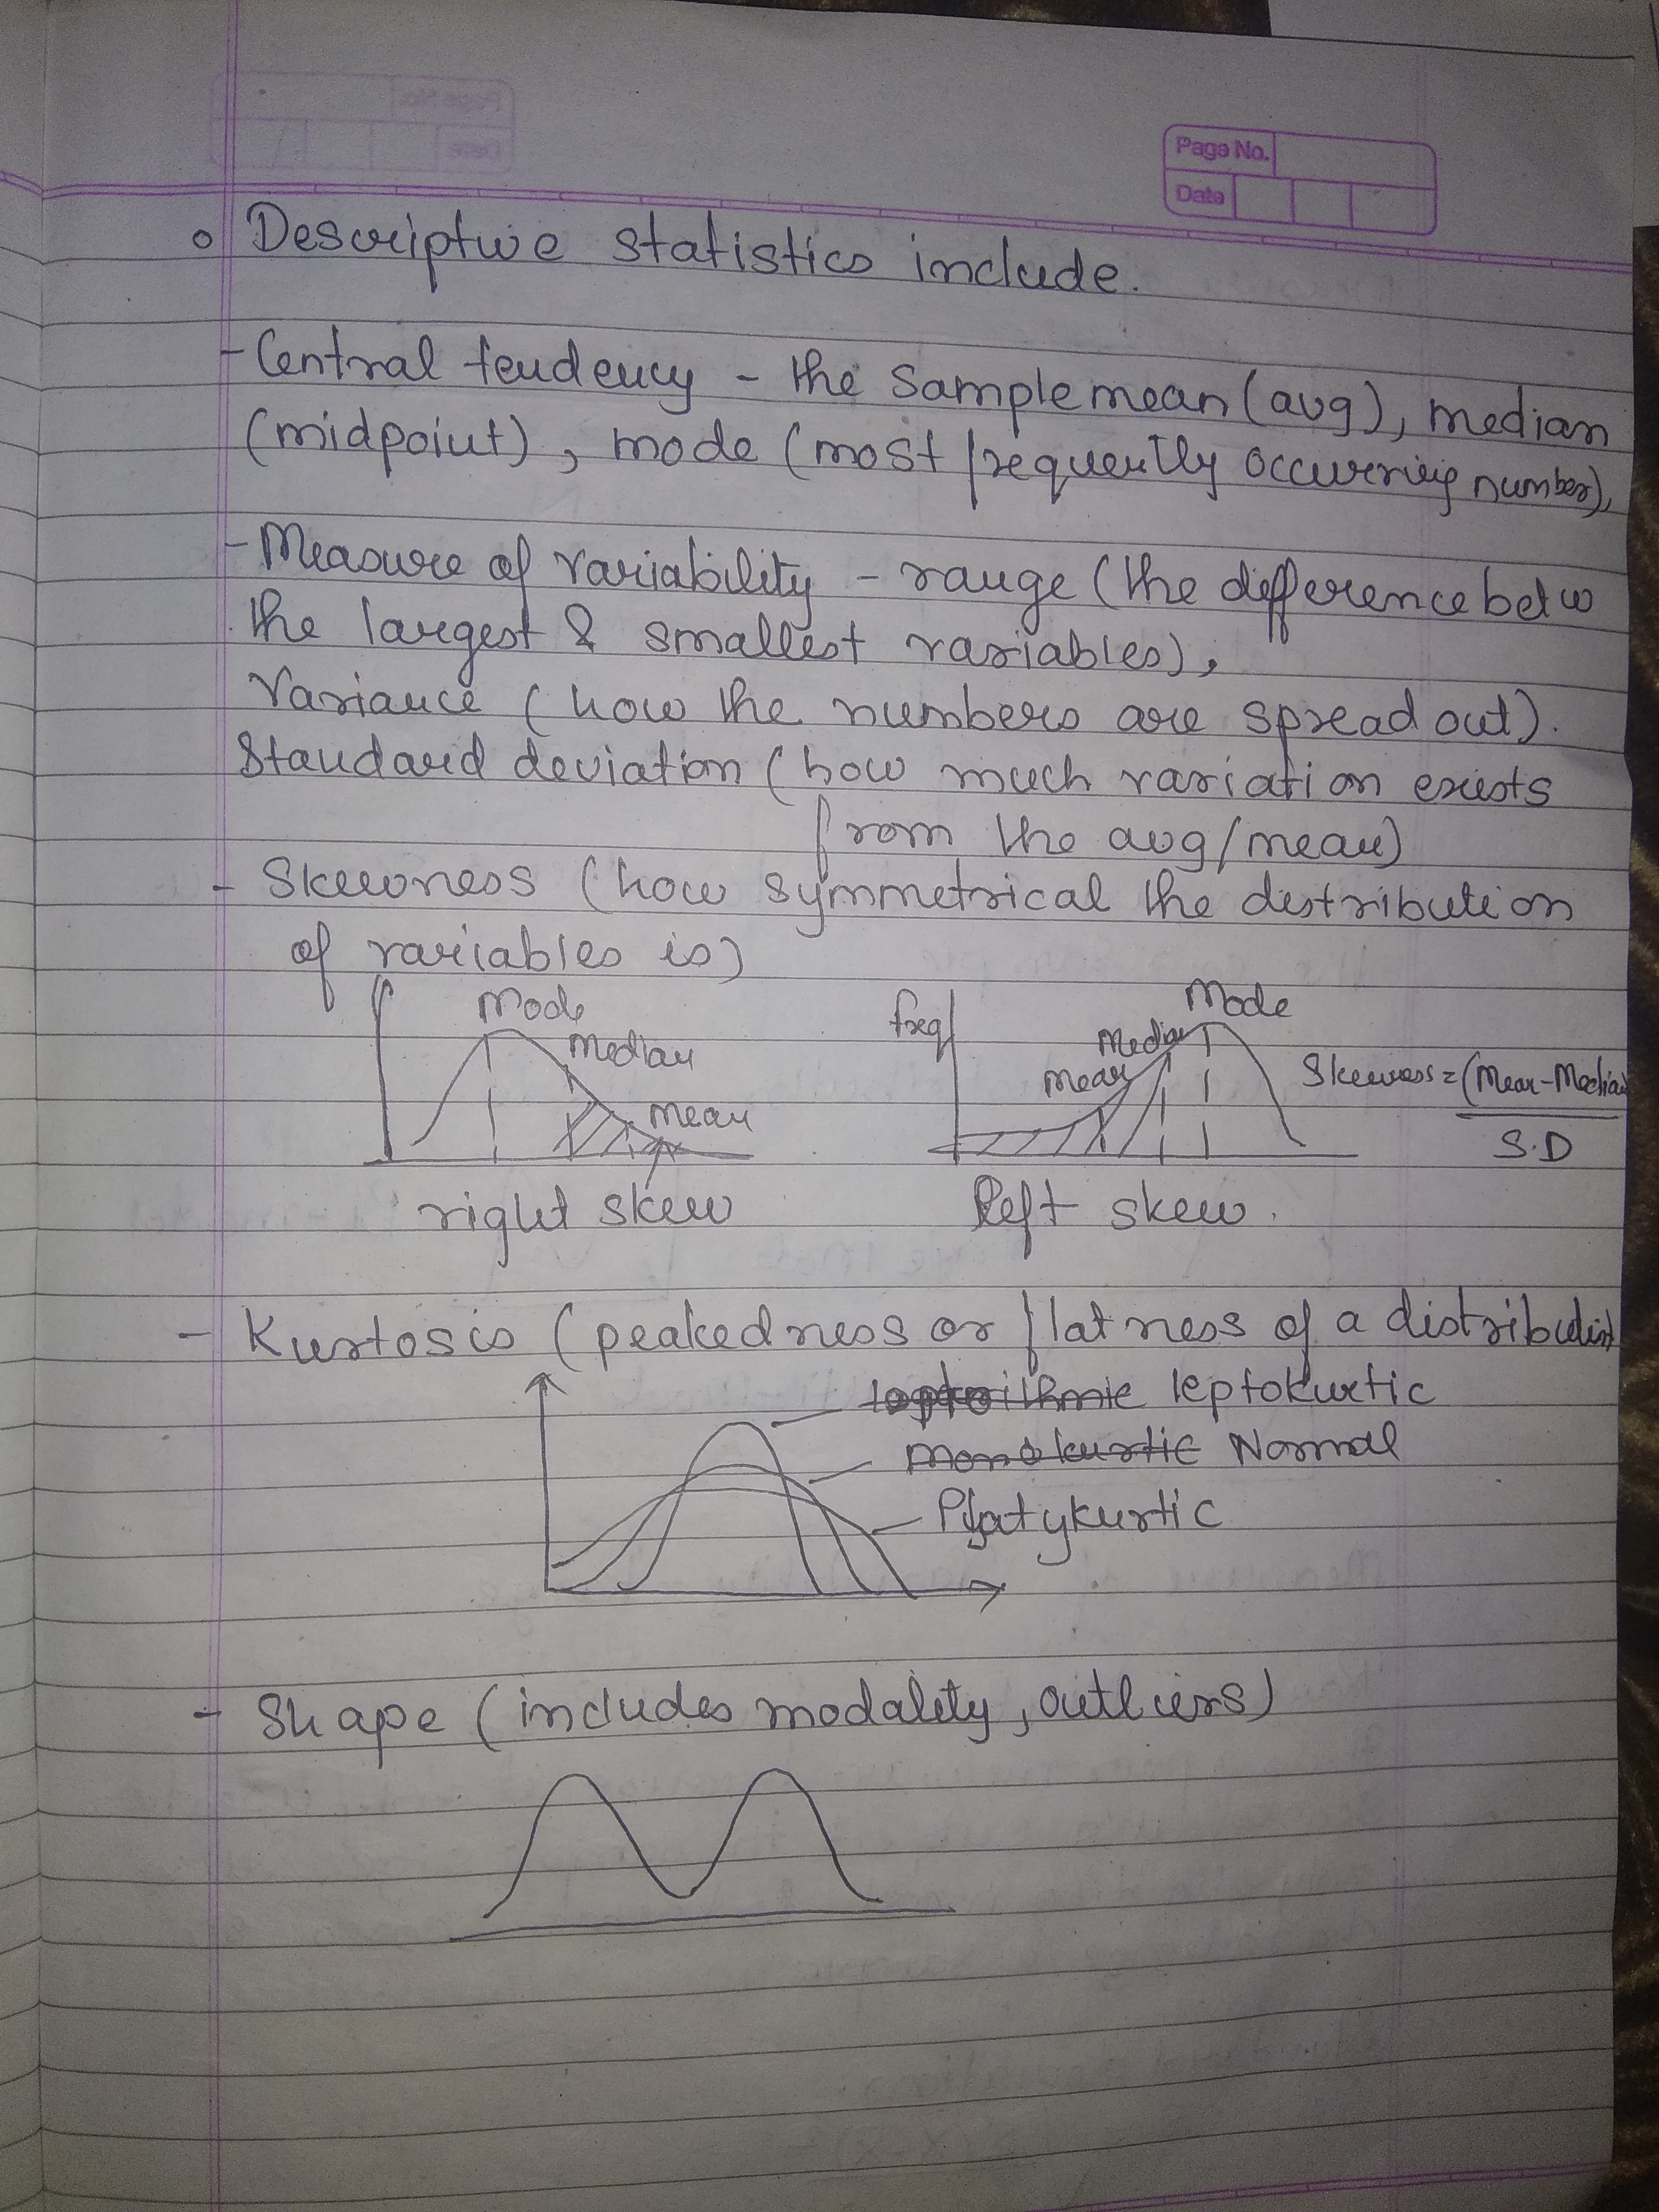 Page No.
Date
Descriptive statistics include.
- Central tendency - the sample mean (avg), median
(midpoint), mode (most frequently occurring number),
- Measure of variability - range (the difference betw
the largest & smallest variables),
Variance (how the numbers are spread out).
Standard deviation (how much variation exists
from the avg/mean)
- Skewness (how symmetrical the distribution
of variables is)
Mode
Median
Mean
right skew
freq
Mode
Median
Mean
left skew.
Skewness = (Mean - Median)
S.D
- Kurtosis (peakedness or flatness of a distribution)
leptokurtic
Monokurtic Normal
Platykurtic
- Shape (includes modality, outliers)